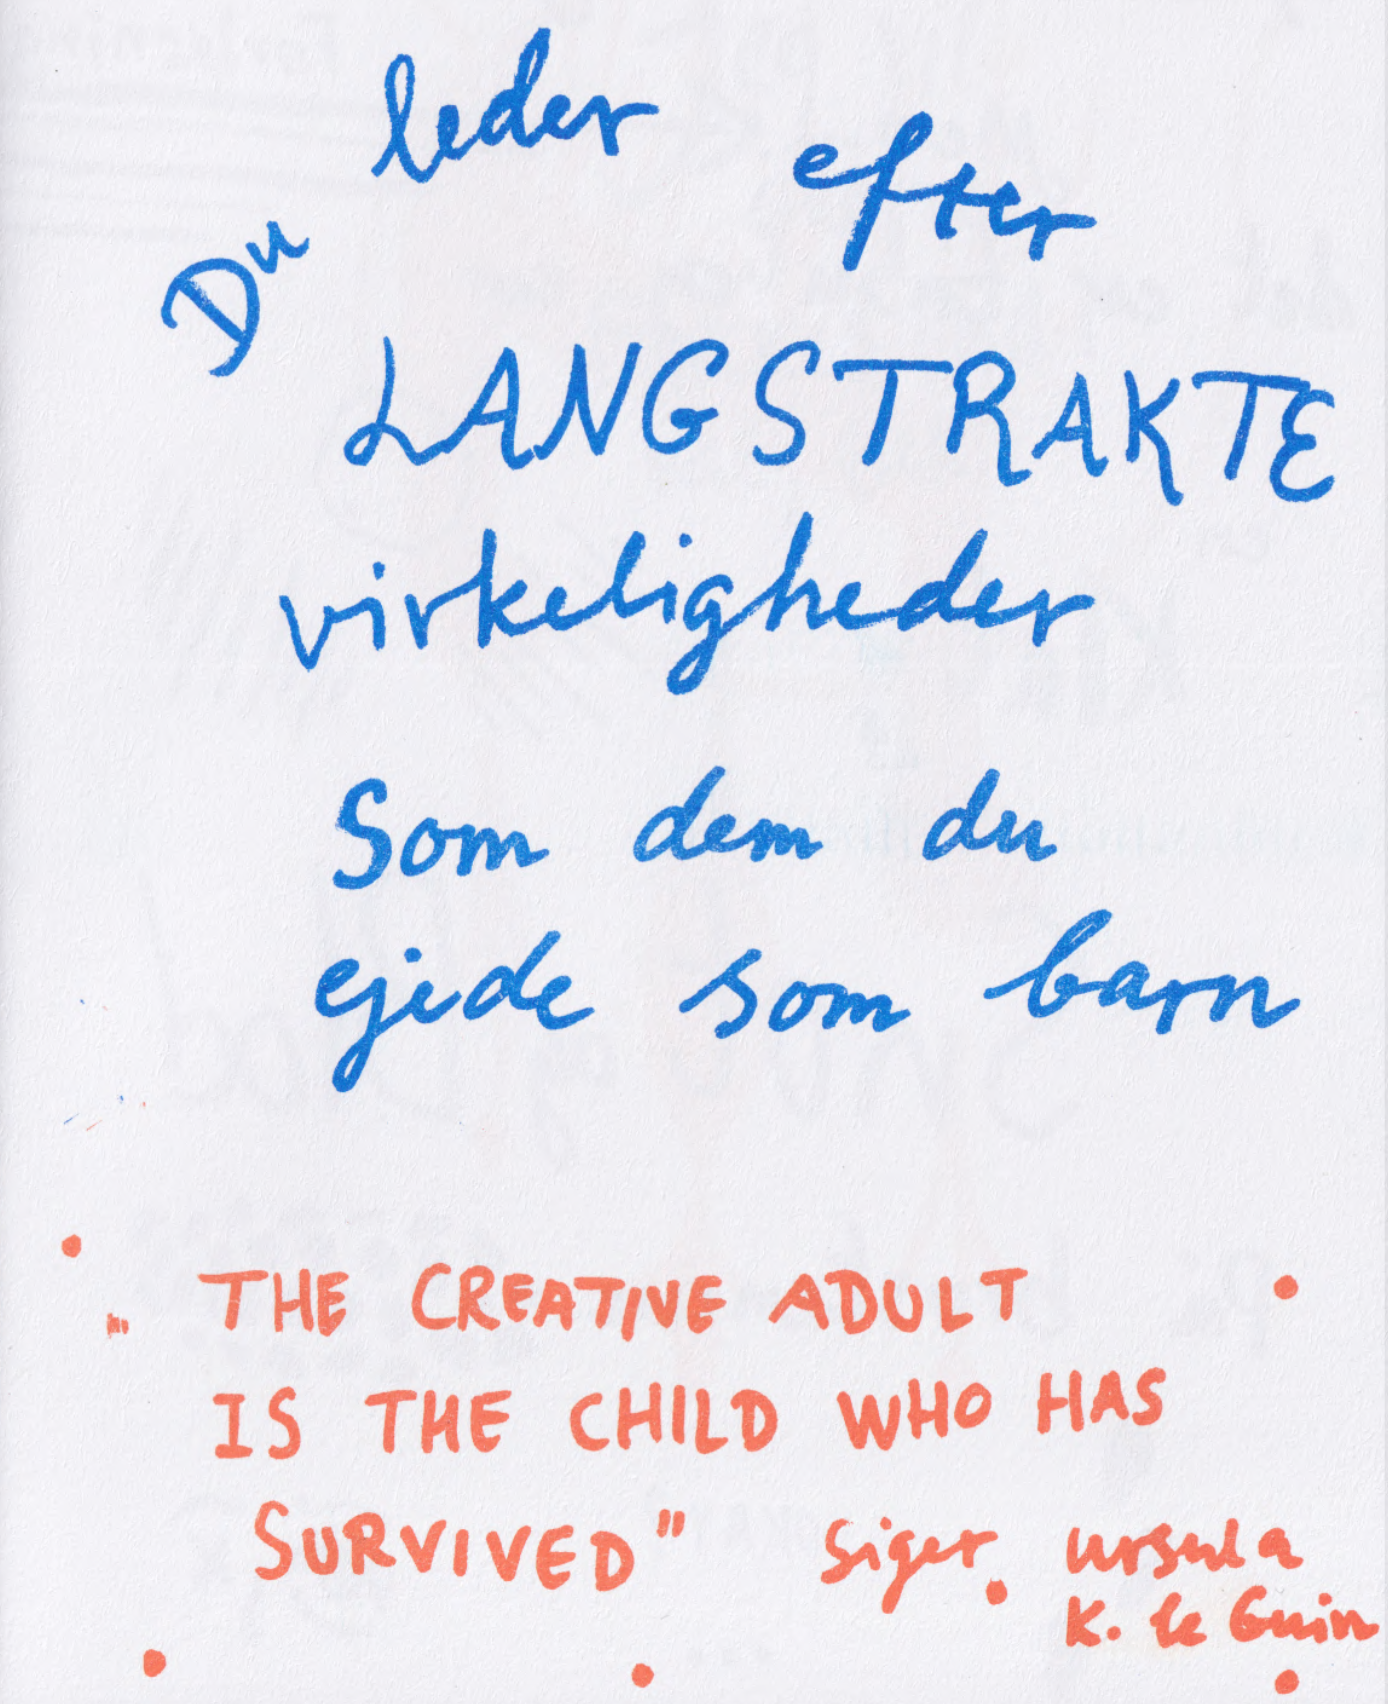 Du leder efter
LANGSTRAKTE
virkeligheder
Som dem du
ejede som barn
" THE CREATIVE ADULT
IS THE CHILD WHO HAS
SURVIVED" siger ursula
K. le Guin